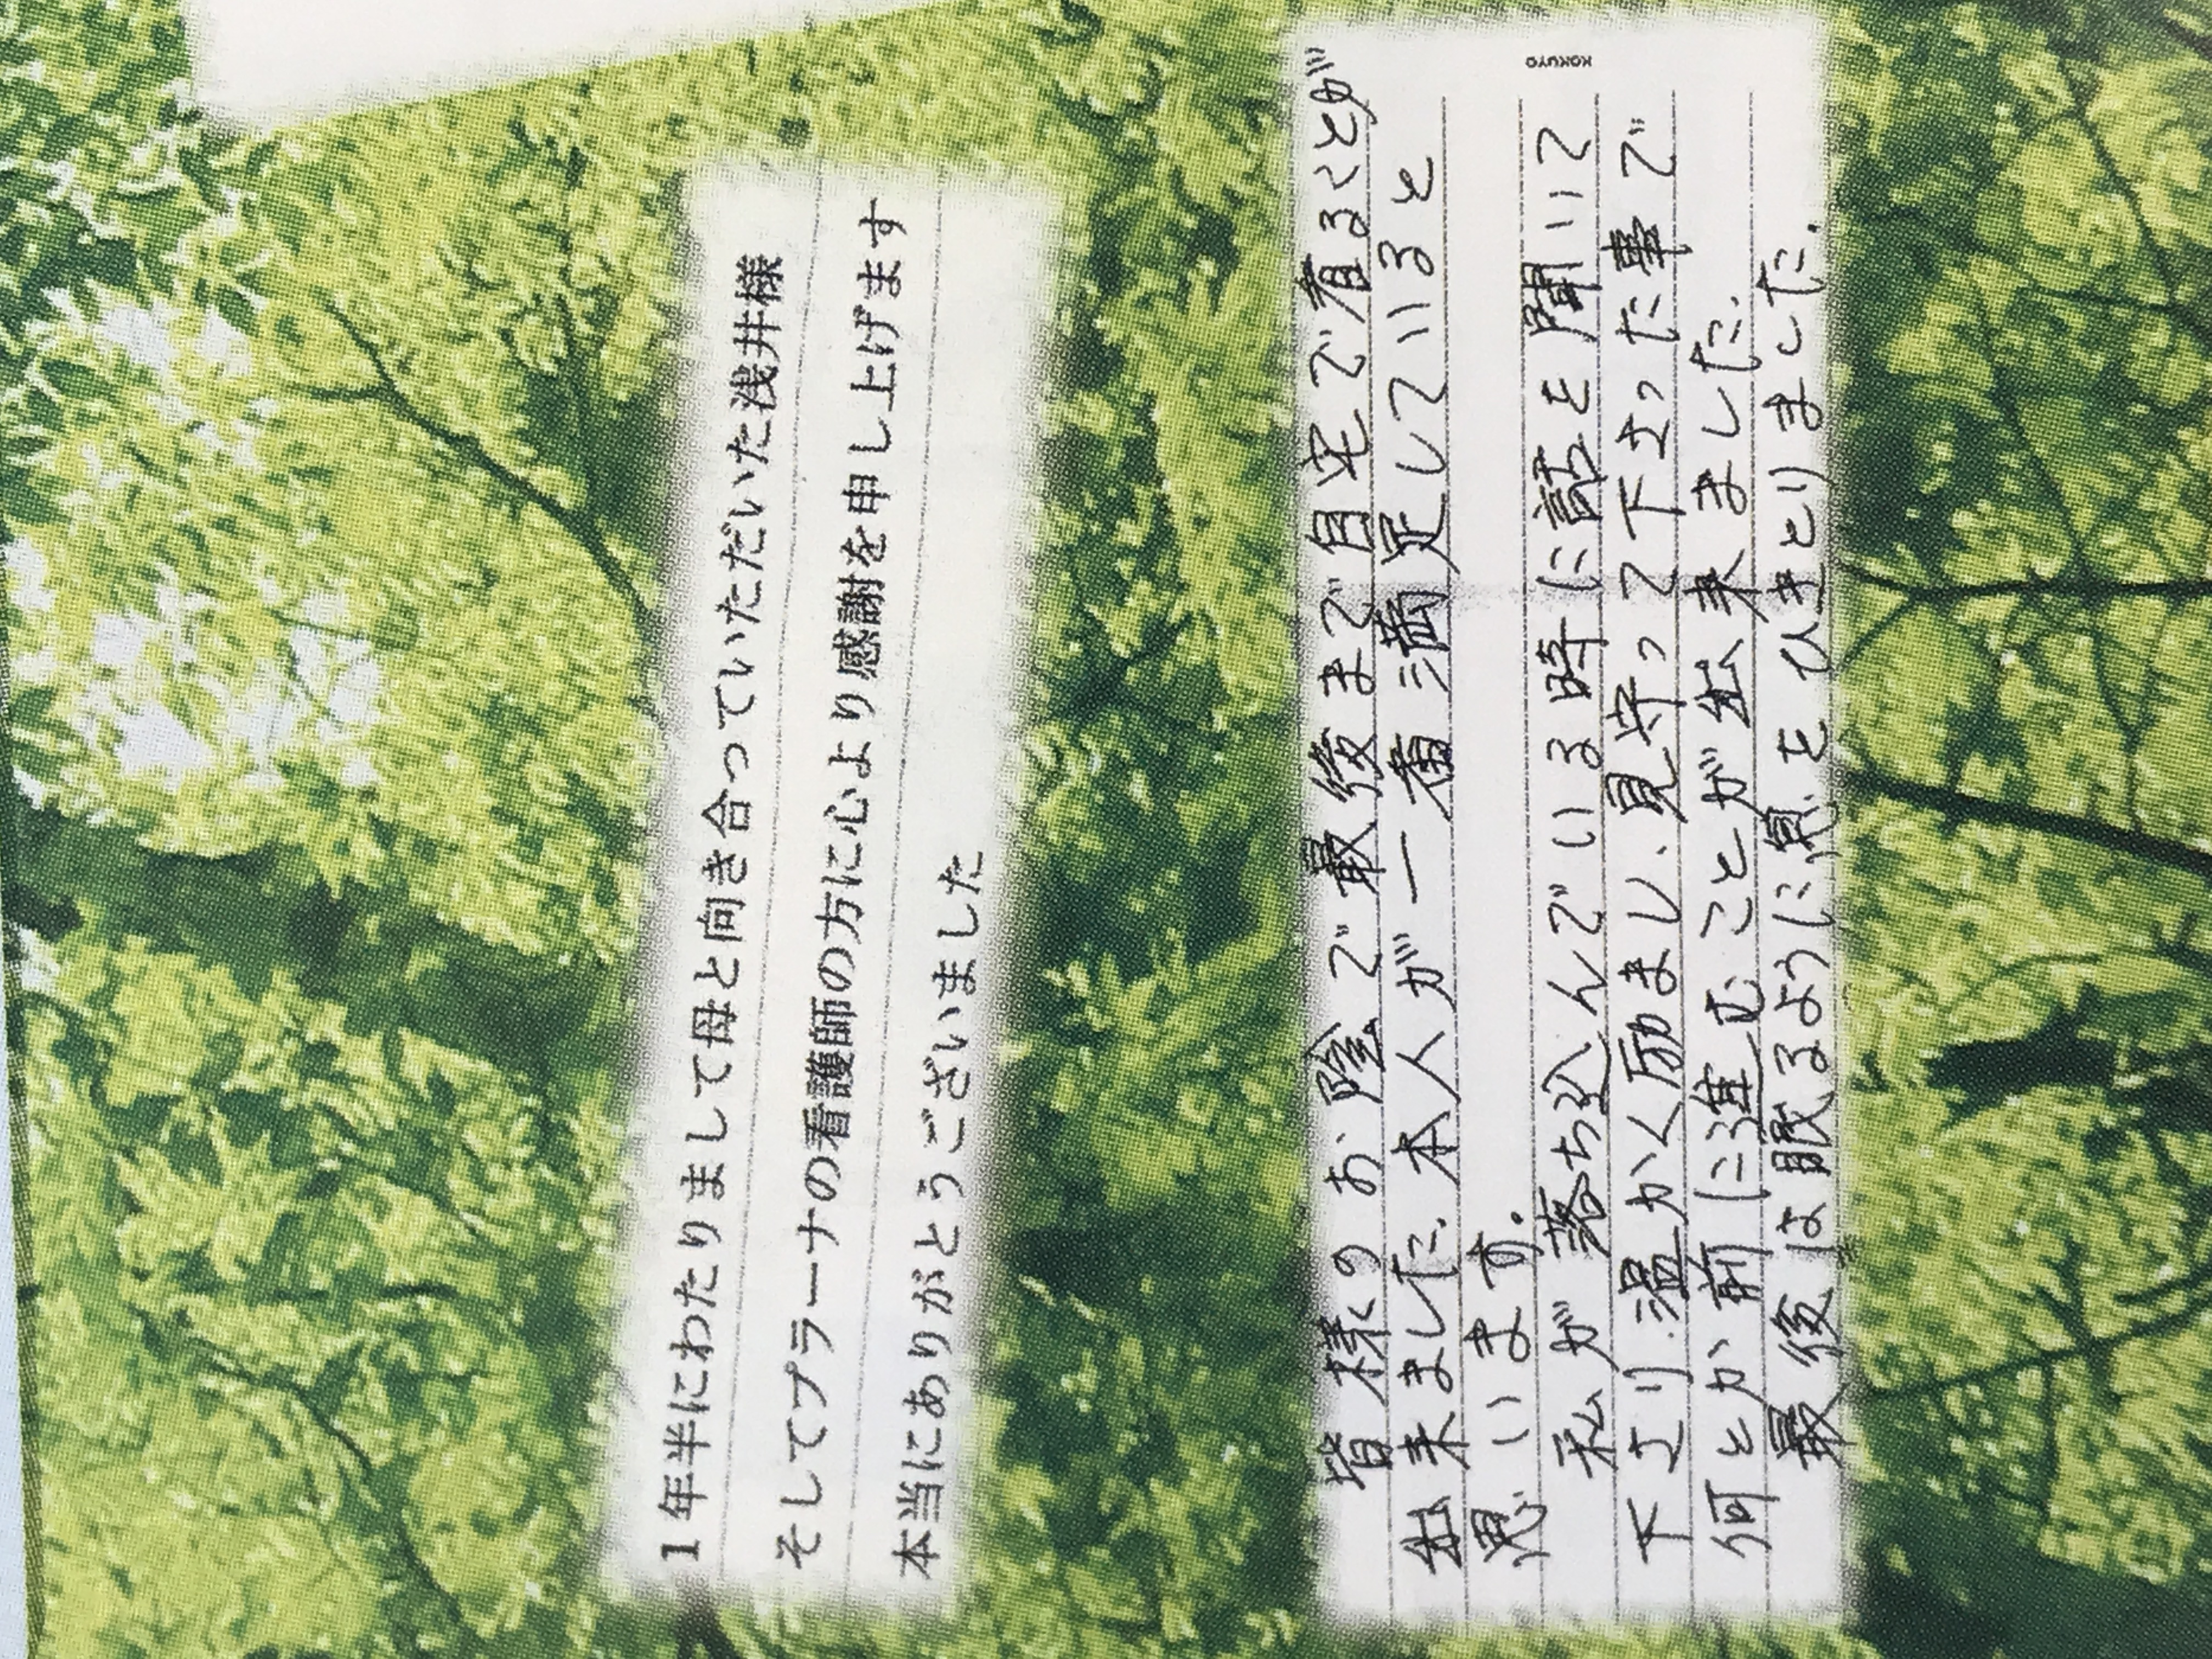 1年半にわたりまして母と向き合っていただいた浅井様
そしてプラーナの看護師の方に心より感謝を申し上げます
本当にありがとうございました
KOKUYO
皆様のお陰で最後まで自宅で看ることが
出来ました。本人が一番満足していると
思います。
私が落ち込んでいる時に話を聞いて
下さり、温かく励まし、見守って下さった事で
何とか前に進むことが出来ました。
最後は眠るように息をひきとりました。